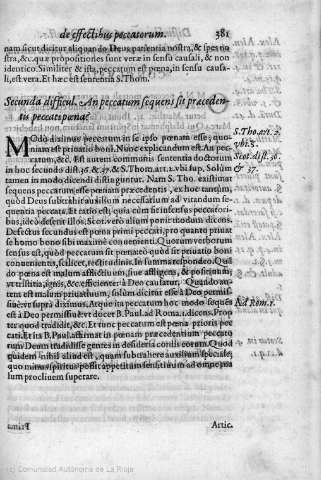 de effectibus peccatorum. 381
nam sicut dicitur aliquando Deus patientia nostra, & spes no
stra, &c. quæ propositiones sunt veræ in sensu causali, & non
identico. Similiter & ista, peccatum est pœna, in sensu causa-
li, est vera. Et hæc est sententia S. Thom.
Secunda difficul. An peccatum sequens sit præceden-
tis peccati pœna?
MOdò diximus peccatum in se ipso pœnam esse; quo-
niam est priuatio boni. Nunc explicandum est. An pec
catum, &c. Est autem communis sententia doctorum
in hoc secundo dist. 36. & 37. & S. Thom. art. 2. vbi sup. Solùm
tamen in modo dicendi distinguntur. Nam S. Tho. existimat
sequens peccatum, esse pœnam præcedentis, ex hoc tantùm,
quòd Deus subtrahit auxilium necessarium ad vitandum se-
quentia peccata. Et ratio est; quia cùm sit
bus, ideò deserit illos. Scotus verò aliam ponit modum dicens.
Defectus secundus est pœna primi peccati, pro quanto priuat
se homo bono sibi maximè conuenienti. Quorum verborum
sensus est, quòd peccatum sit pœna, eo quòd sit priuatio boni
conuenientis, scilicet, rectitudinis. In summa respondeo. Quã
do pœna est malum afflictiuum, siue affligens, & positiuum;
vt tristitia, ignis, &c. efficienter à Deo causatur. Quando au-
tem est malum priuatiuum, solùm dicitur esse à Deo permis-
siuè vt supra diximus. Atque ita peccatum hoc modo sequẽs
est à Deo permissiuè vt docet B. Paul. ad Roma. 1. dicens. Prop
ter quod tradidit, &c. Et tunc peccatum est pœna prioris pec
cati. Et in B. Paul. astimat in pœnam præcedentium pecato
rum Deum tradidisse gentes in desideria cordis eorum. Quod
quidem nihil aliud est, quàm subtrahere auxilium speciale,
quo minus spiritus possit appetitum sensitiuum ad omne ma
lum procliuem superare.
Artic.
S. Tho. art. 2.
vbi s.
Scot. dist. 36.
& 37.
Ad Rom. 1.
(c) Comunidad Autónoma de La Rioja